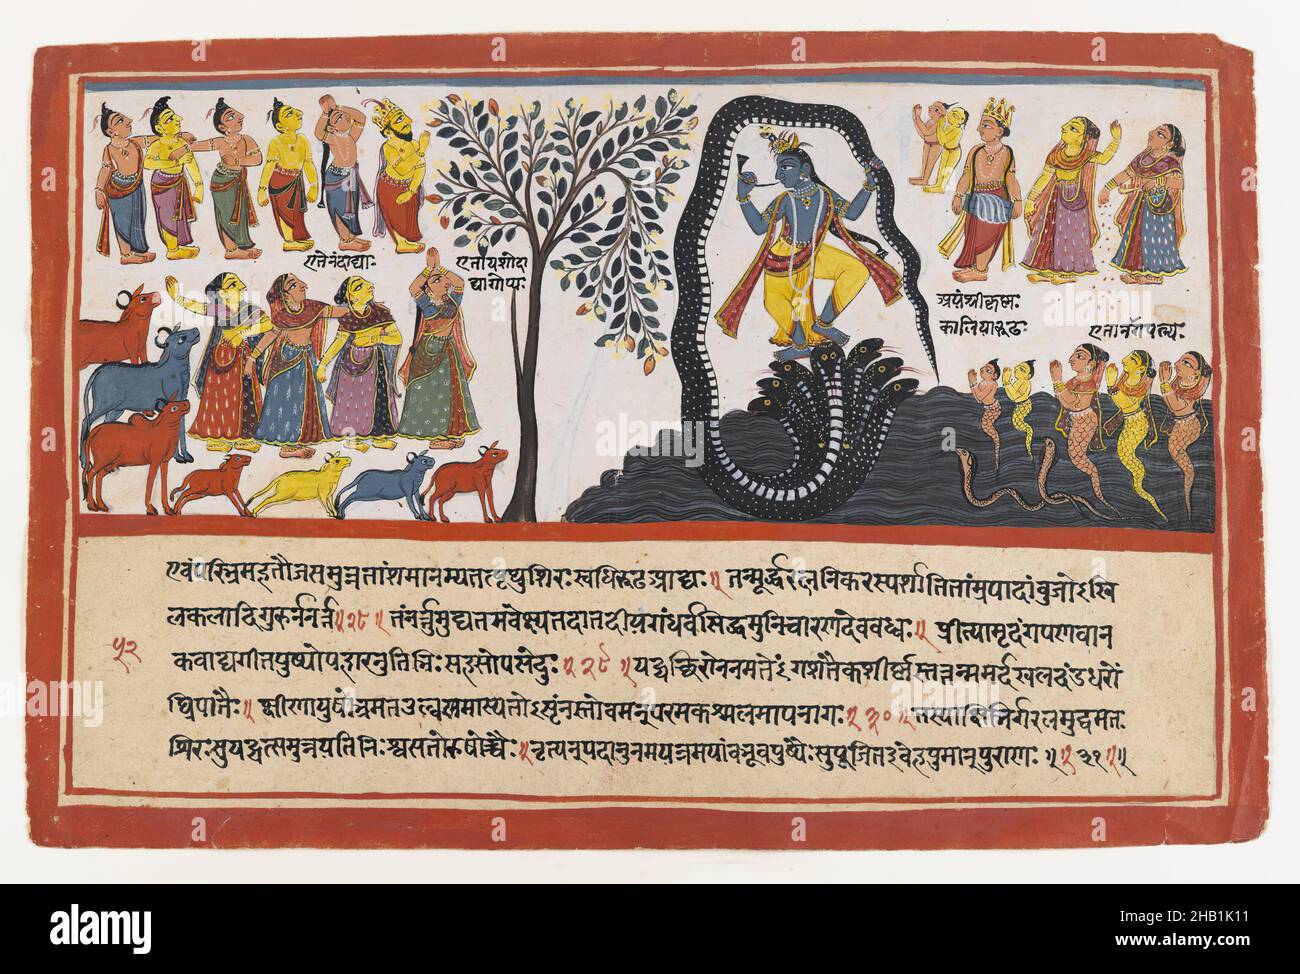 एतेनंदाद्याः
एतायशोदा
द्यागोप्यः
अयंश्रीकृष्णः
कालियारूढ
एतानागपत्न्यः
एवंपरिभ्रमहतौजसमुन्नतांशमानम्यतत्पृथुशिरःस्वधिरूढआद्यः॥ तन्मूर्द्धरत्ननिकरस्पर्शातितांम्रपादांबुजोऽखि
लकलादिगुरुर्ननर्त्त॥२८॥ तंनर्त्तुमुद्यतमवेक्ष्यतदातदीयगंधर्वसिद्धमुनिचारणदेववध्वः॥ प्रीत्यामृदंगपणवान
५२
कवाद्यगीतपुष्पोपहारनुतिभिःसहसोपसेदुः॥२९॥यद्यच्छिरोननमतेंऽगशतैकशीर्ष्णस्तत्तन्ममर्दखलदंडधरों
घ्रिपातैः॥क्षीणायुषोभ्रमतउल्बणमास्यतोऽसृंनस्तोवमन्परमकश्मलमापनागः॥३०॥तस्याक्षिभिर्गरलमुद्वमतः
शिरःसुयद्यत्समुन्नमतिनिःश्वसतोरुषोच्चैः॥नृत्यन्पदानुनमयन्दमयांबभूवपुष्पैःसुपूजितइवेहपुमान्पुराणः॥॥३१॥॥
alamy
Image ID: 2HB1K11
www.alamy.com